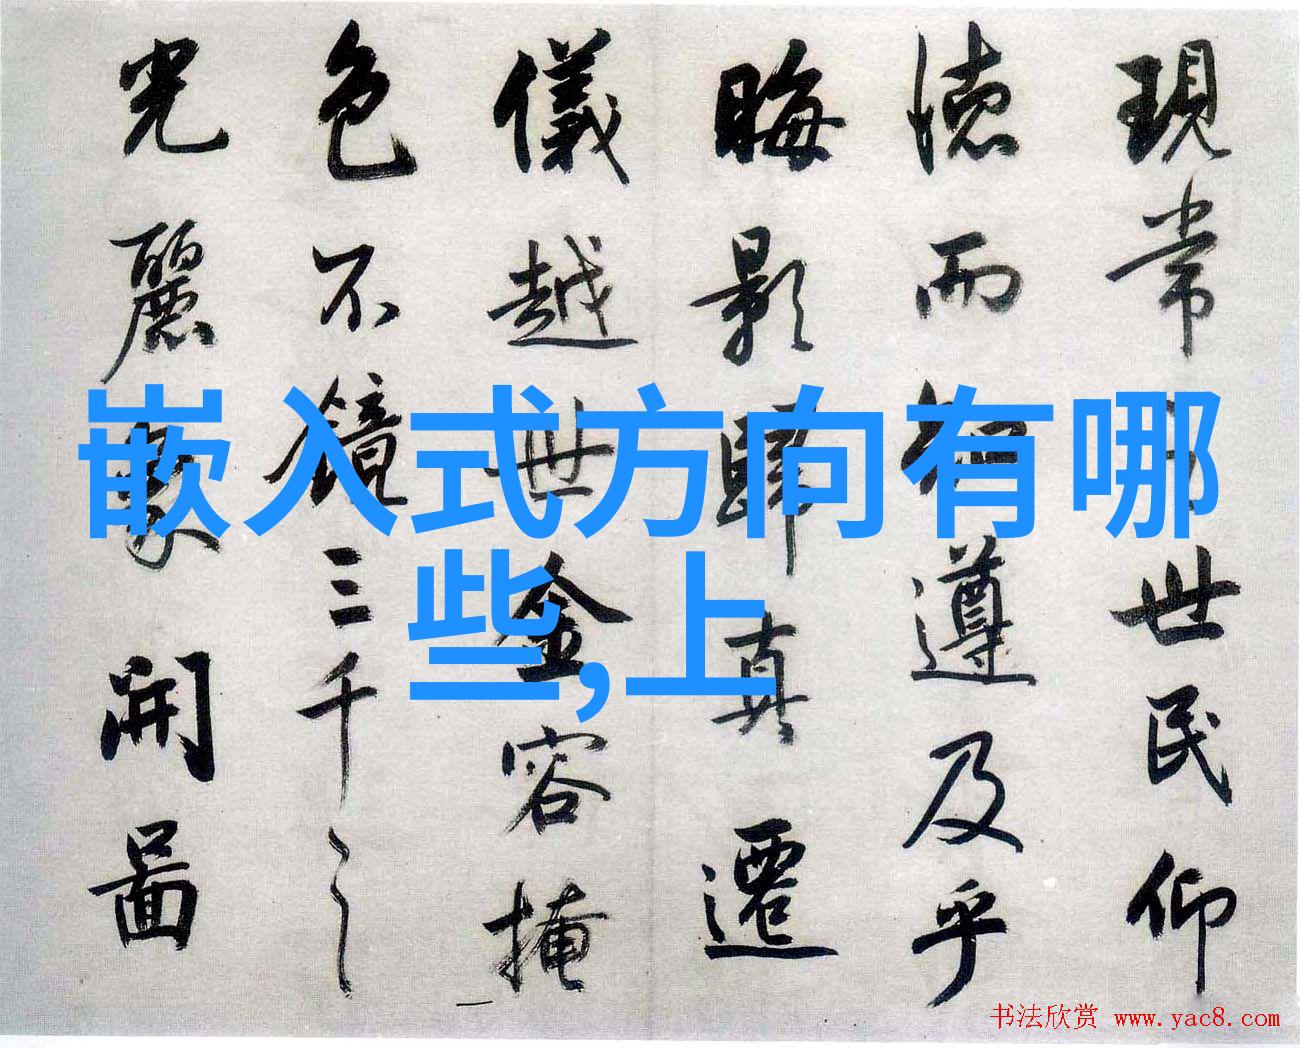 現常世民仰
德而遵及乎
晦影歸真遷
儀越世金容掩
色不鏡三千之
光麗象開圖
嵌入式方向有哪
些,上
书法欣赏 www.yac8.com